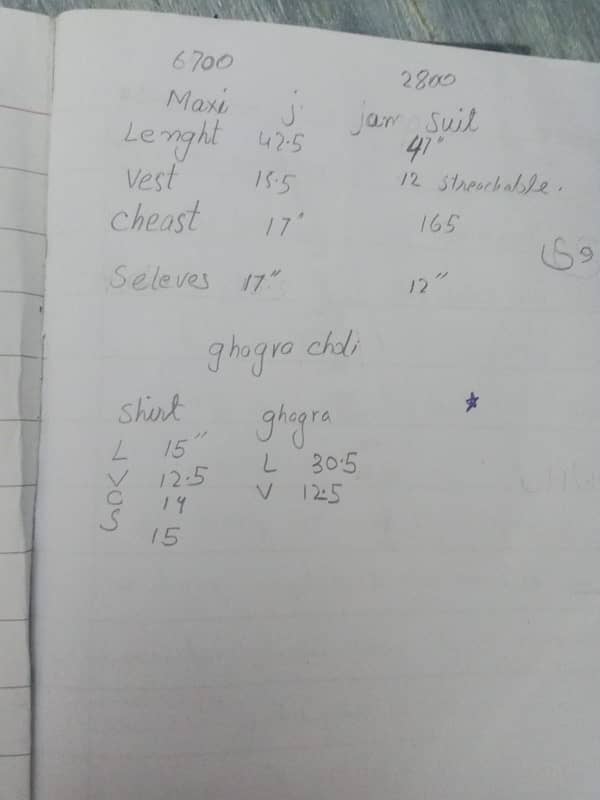 6700 2800
Maxi j. jam suit
Lenght 42.5 47"
Vest 15.5 12 streachable.
Cheast 17" 165
Seleves 17" 12"
ghagra choli
Shirt ghagra
L 15" L 30.5
V 12.5 V 12.5
C 14
S 15